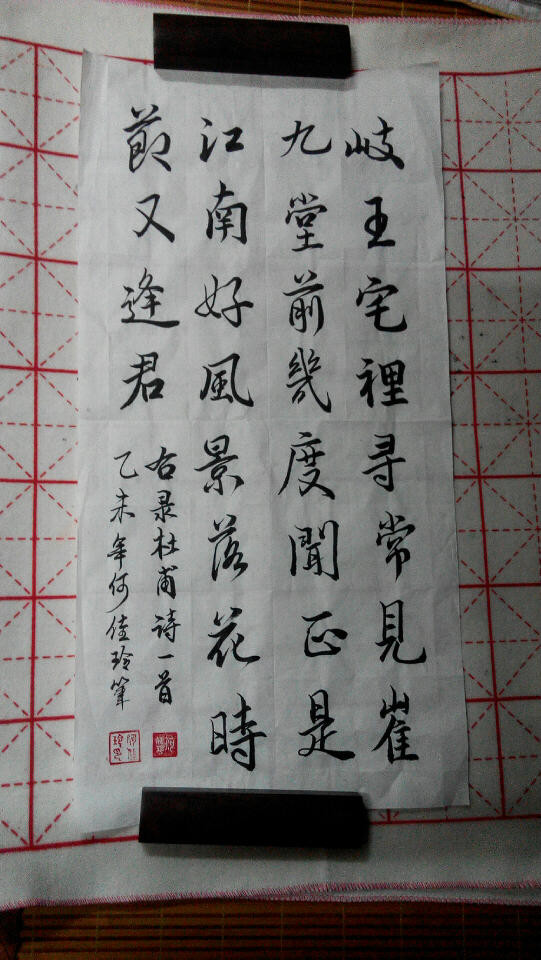 岐王宅裡寻常見崔
九堂前幾度聞正是
江南好風景落花時
節又逢君
右录杜甫诗一首
乙未年何佳玲筆